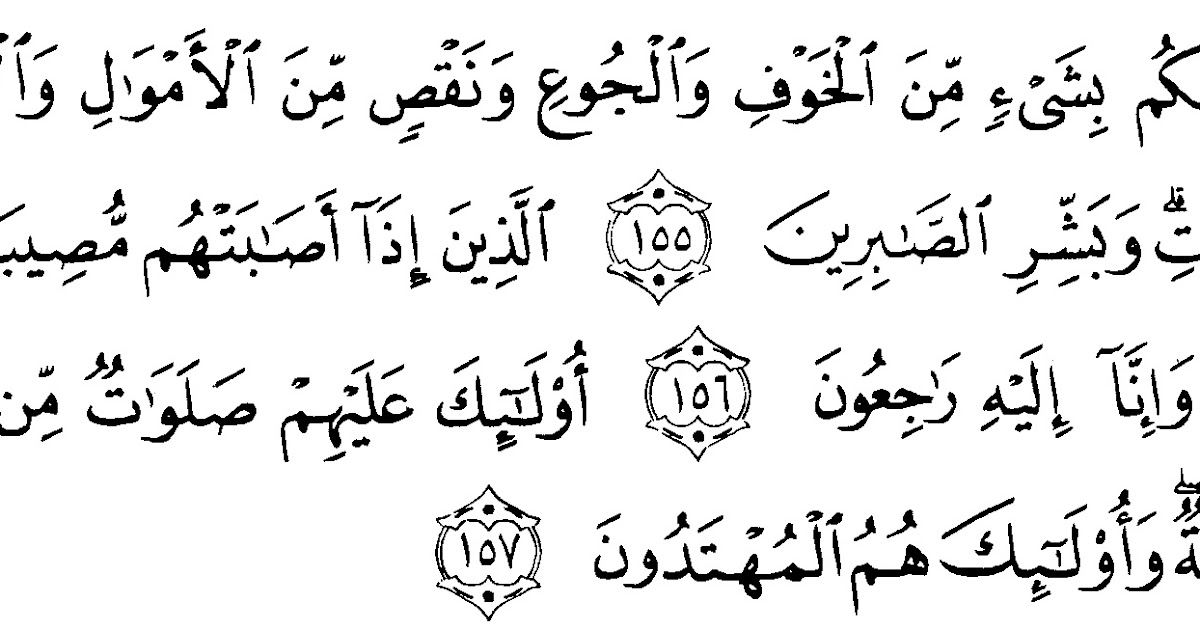 كُم بِشَىْءٍ مِّنَ ٱلْخَوْفِ وَٱلْجُوعِ وَنَقْصٍ مِّنَ ٱلْأَمْوَٰلِ
وَبَشِّرِ ٱلصَّـٰبِرِينَ ١٥٥ ٱلَّذِينَ إِذَآ أَصَـٰبَتْهُم مُّصِيبَ
وَإِنَّآ إِلَيْهِ رَٰجِعُونَ ١٥٦ أُو۟لَـٰٓئِكَ عَلَيْهِمْ صَلَوَٰتٌ مِّن
وَأُو۟لَـٰٓئِكَ هُمُ ٱلْمُهْتَدُونَ ١٥٧